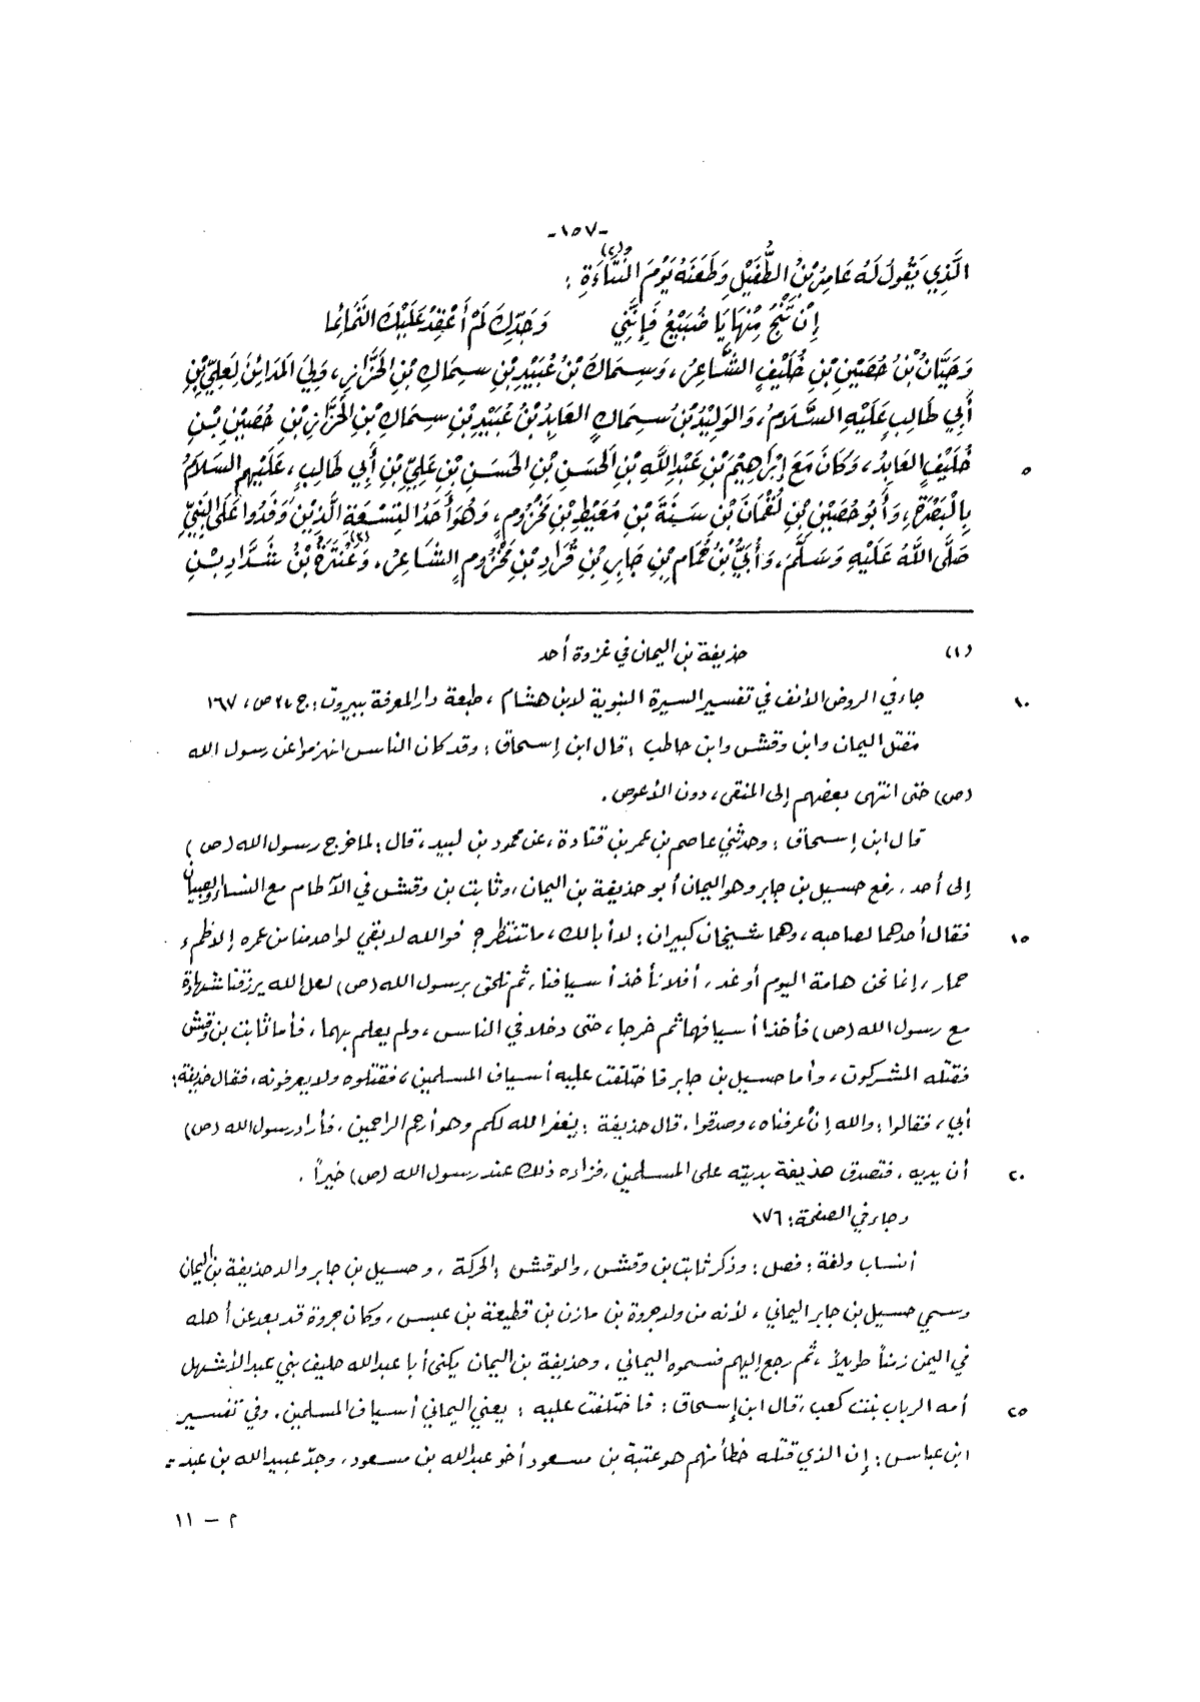 -١٥٧-
الَّذِي يَقُولُ لَهُ عَامِرُ بْنُ الطُّفَيْلِ وَطَعَنَهُ يَوْمَ النَّتَاءَةِ (٢) :
إِنْ تَنْجُ مِنْهَا يَا ضُبَيْعُ فَإِنَّنِي وَجَدِّكَ لَمْ أَعْقِدْ عَلَيْكَ التَّمَائِمَا
وَحَيَّانُ بْنُ حُصَيْنِ بْنِ خُلَيْفٍ الشَّاعِرُ، وَسِمَاكُ بْنُ عُبَيْدِ بْنِ سِمَاكِ بْنِ الْحَزَّازِ، وَلِيَ الْمَدَائِنَ لِعَلِيِّ بْنِ
أَبِي طَالِبٍ عَلَيْهِ السَّلَامُ، وَالوَلِيْدُ بْنُ سِمَاكٍ العَابِدُ بْنُ عُبَيْدِ بْنِ سِمَاكِ بْنِ الْحَزَّازِ بْنِ حُصَيْنِ بْنِ
خُلَيْفٍ العَابِدُ، وَكَانَ مَعَ إِبْرَاهِيْمَ بْنِ عَبْدِ اللَّهِ بْنِ الْحَسَنِ بْنِ الْحَسَنِ بْنِ عَلِيِّ بْنِ أَبِي طَالِبٍ، عَلَيْهِم السَّلَامُ ٥
بِالْبَصْرَةِ، وَأَبُو حُصَيْنِ بْنِ لُقْمَانَ بْنِ سَنَةَ بْنِ مُعَيْطِ بْنِ مَخْزُومٍ، وَهُوَ أَحَدُ التِسْعَةِ الَّذِيْنَ وَفَدُوا عَلَى النَّبِيِّ
صَلَّى اللَّهُ عَلَيْهِ وَسَلَّمَ، وَأُبَيُّ بْنُ حُمَامِ بْنِ جَابِرِ بْنِ قُرَادِ بْنِ مَخْزُومٍ الشَاعِرُ، وَعَنْتَرَةُ (٣) بْنُ شَدَّادِ بْنِ
(١) حذيفة بن اليمان في غزوة أحد
جاء في الروض الأنف في تفسير السيرة النبوية لابن هشام، طبعة دار المعرفة ببيروت: ج ٣ ص، ١٦٧ ١٠
مقتل اليمان وابن وقش وابن حاطب: قال ابن إسحاق: وقد كان الناس انهزموا عن رسول الله
(ص) حتى انتهى بعضهم إلى المنقى، دون الأعوص.
قال ابن إسحاق: وحدثني عاصم بن عمر بن قتادة، عن محمود بن لبيد، قال: لما خرج رسول الله (ص)
إلى أحد، رفع حسيل بن جابر وهو اليمان أبو حذيفة بن اليمان، وثابت بن وقش في الآطام مع النساء والصبيان
فقال أحدهما لصاحبه، وهما شيخان كبيران: لا أبا لك، ما تنتظر؟ فوالله لا بقي لواحد منا من عمره إلا ظمء ١٥
حمار، إنما نحن هامة اليوم أو غد، أفلا نأخذ أسيافنا، ثم نلحق برسول الله (ص) لعل الله يرزقنا شهادة
مع رسول الله (ص) فأخذا أسيافهما ثم خرجا، حتى دخلا في الناس، ولم يعلم بهما، فأما ثابت بن وقش
فقتله المشركون، وأما حسيل بن جابر فاختلفت عليه أسياف المسلمين، فقتلوه ولا يعرفونه، فقال حذيفة:
أبي، فقالوا: والله إنْ عرفناه، وصدقوا، قال حذيفة: يغفر الله لكم وهو أرحم الراحمين، فأراد رسول الله (ص)
أن يديه، فتصدق حذيفة بديته على المسلمين، فزاده ذلك عند رسول الله (ص) خيراً. ٢٠
وجاء في الصفحة: ١٧٦
أنساب ولغة: فصل: وذكر ثابت بن وقش، والوقش: الحركة، وحسيل بن جابر والد حذيفة بن اليمان
وسمي حسيل بن جابر اليماني، لأنه من ولد جروة بن مازن بن قطيعة بن عبس، وكان جروة قد بعد عن أهله
في اليمن زمناً طويلاً، ثم رجع إليهم فسموه اليماني، وحذيفة بن اليمان يكنى أبا عبد الله حليف بني عبد الأشهل
أمه الرباب بنت كعب، قال ابن إسحاق: فاختلفت عليه: يعني اليماني أسياف المسلمين، وفي تفسير ٢٥
ابن عباس: إن الذي قتله خطأ منهم هو عتبة بن مسعود أخو عبد الله بن مسعود، وجدّ عبيد الله بن عبد =
م - ١١